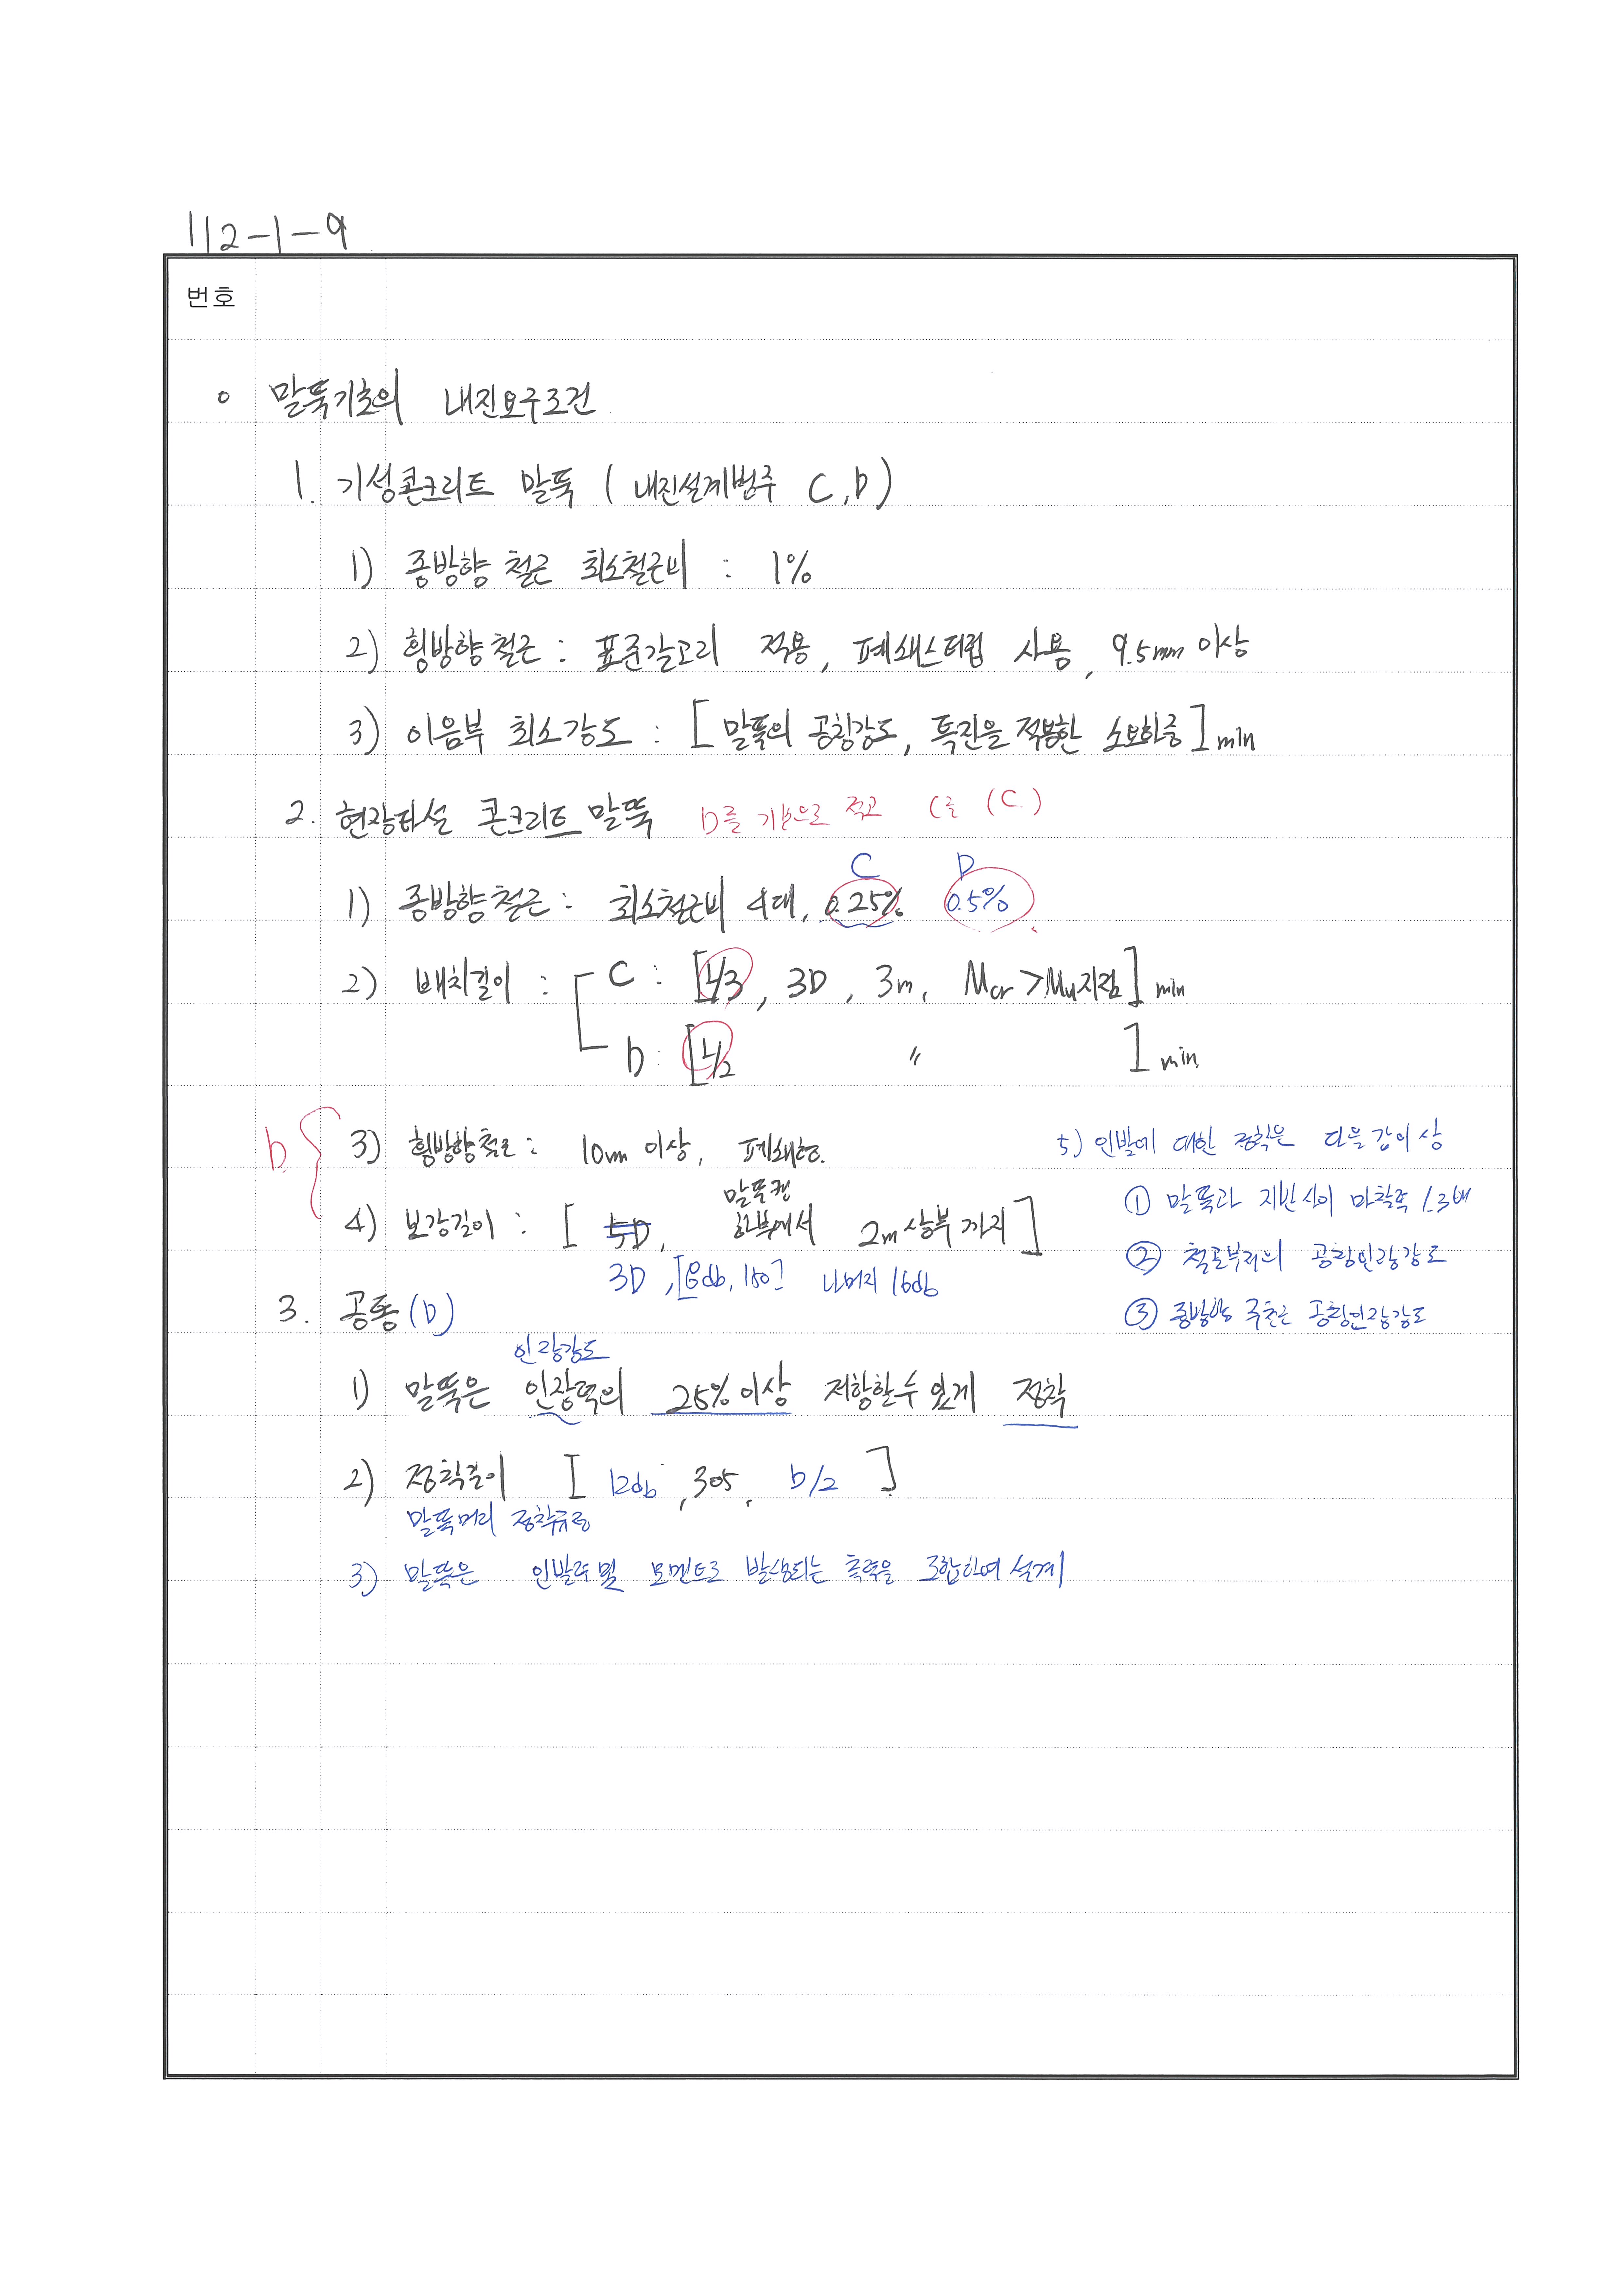 112-1-9
번호
○ 말뚝기초의 내진요구조건
1. 기성콘크리트 말뚝 ( 내진설계범주 C, D )
1) 종방향 철근 최소철근비 : 1%
2) 횡방향철근 : 표준갈고리 적용, 폐쇄스터럽 사용, 9.5mm 이상
3) 이음부 최소강도 : [ 말뚝의 공칭강도, 특진을 적용한 소요하중 ] min
2. 현장타설 콘크리트 말뚝 D를 기본으로 적고 C를 (C.)
C D
1) 종방향철근 : 최소철근비 4대, 0.25% 0.5%
2) 배치길이 : C : [ L/3, 3D, 3m, Mcr > Mu지점 ] min
D : [ L/2 〃 ] min
D 3) 횡방향철근 : 10mm 이상, 폐쇄형.
5) 인발에 대한 정착은 다음 값이상
① 말뚝과 지반사이 마찰력 1.3배
말뚝캡
4) 보강길이 : [ 5D, 하부에서 2m 상부 까지 ]
② 철골부재의 공칭인장강도
3D, [8db, 150] 나머지 16db
3. 공통 (D)
③ 종방향 철근 공칭인장강도
인장강도
1) 말뚝은 인장력의 25% 이상 저항할 수 있게 정착
2) 정착길이 [ 12db, 305, D/2 ]
말뚝머리 정착규정
3) 말뚝은 인발력 및 모멘트로 발생되는 축력을 조합하여 설계